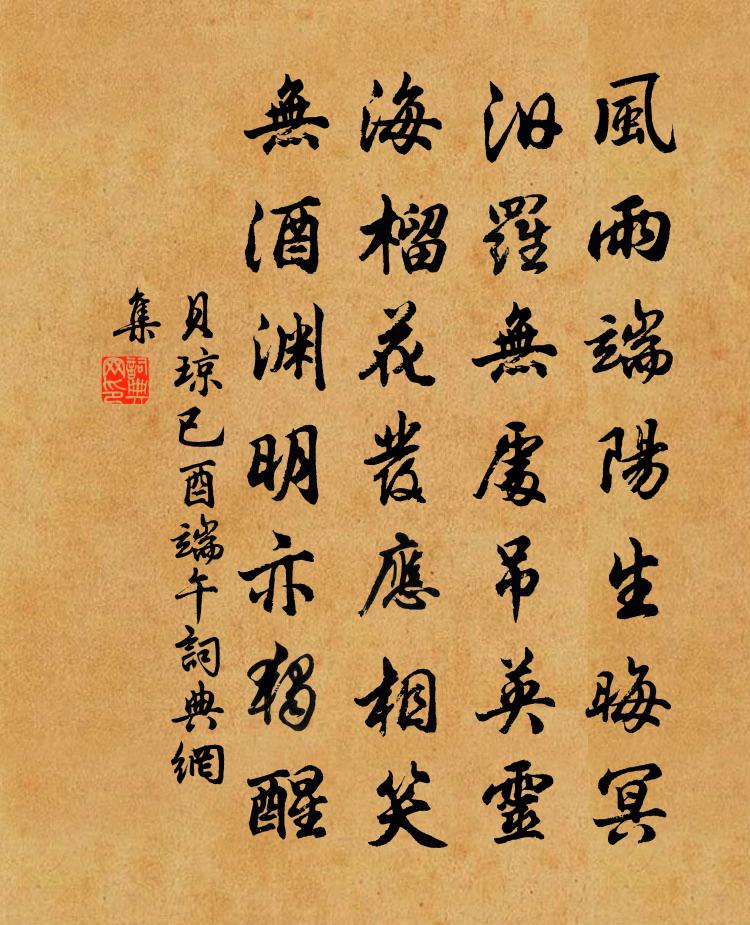 風雨端陽生晦冥
汨羅無處吊英靈
海榴花發應相笑
無酒渊明亦獨醒
貝琼已酉端午詞典網
集
詞典网印